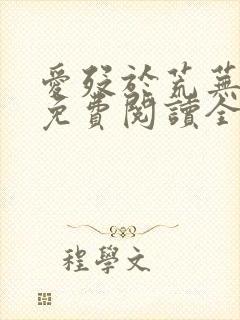 愛殁於荒蕪
免費閱讀全
程學文